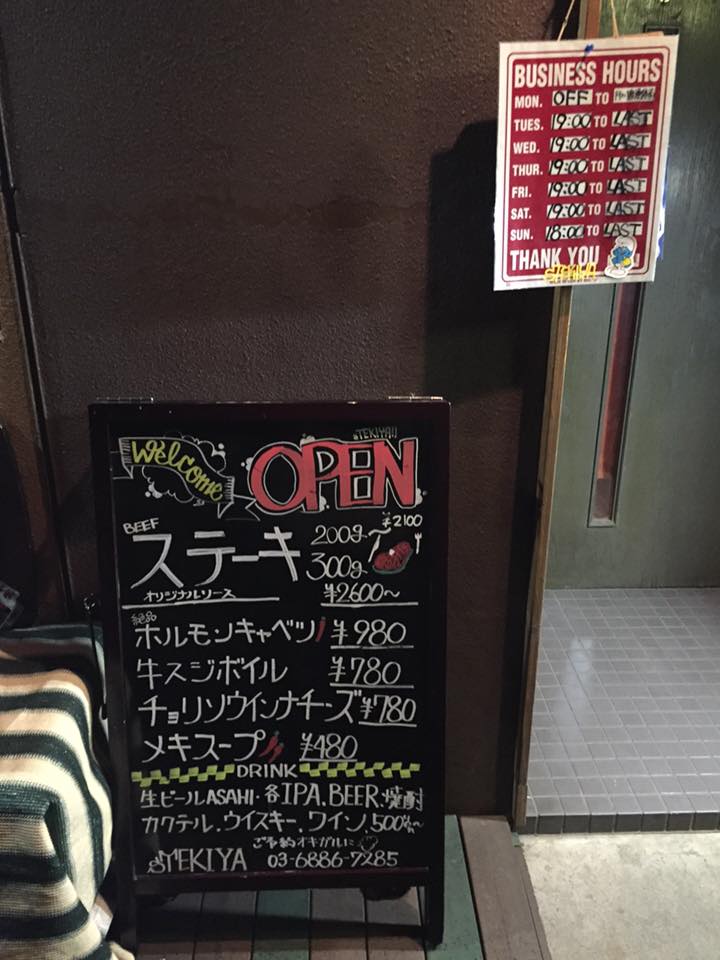 BUSINESS HOURS
MON. OFF TO
TUES. 19:00 TO LAST
WED. 19:00 TO LAST
THUR. 19:00 TO LAST
FRI. 19:00 TO LAST
SAT. 19:00 TO LAST
SUN. 18:00 TO LAST
THANK YOU
Welcome
TEKIYA!!
OPEN
BEEF
ステーキ 200g~ ¥2100
300g ¥2600~
オリジナルソース
絶品
ホルモンキャベツ ¥980
牛スジボイル ¥780
チョリソウインナチーズ ¥780
メキスープ ¥480
DRINK
生ビール ASAHI・各IPA.BEER.焼酎
カクテル.ウイスキー.ワイン.500~
ご予約オキガルに
MEKIYA 03-6886-7285